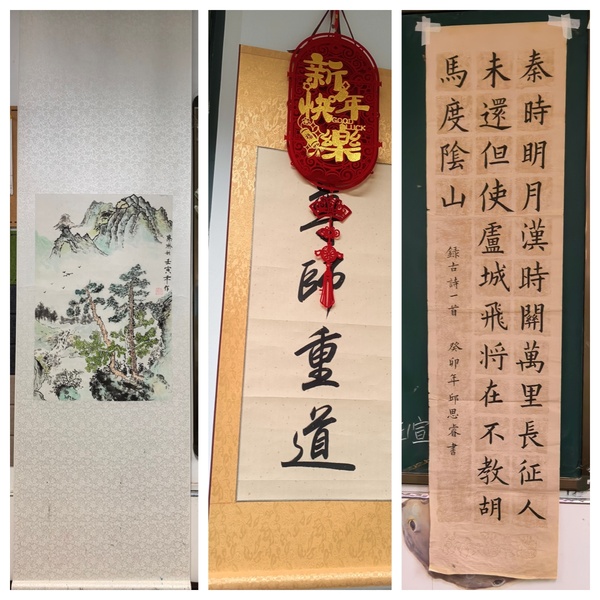 新年
快樂
GOOD
LUCK
尊師重道
秦時明月漢時關萬里長征人
未還但使盧城飛將在不教胡
馬度陰山
録古詩一首 癸卯年邱思睿書
宣